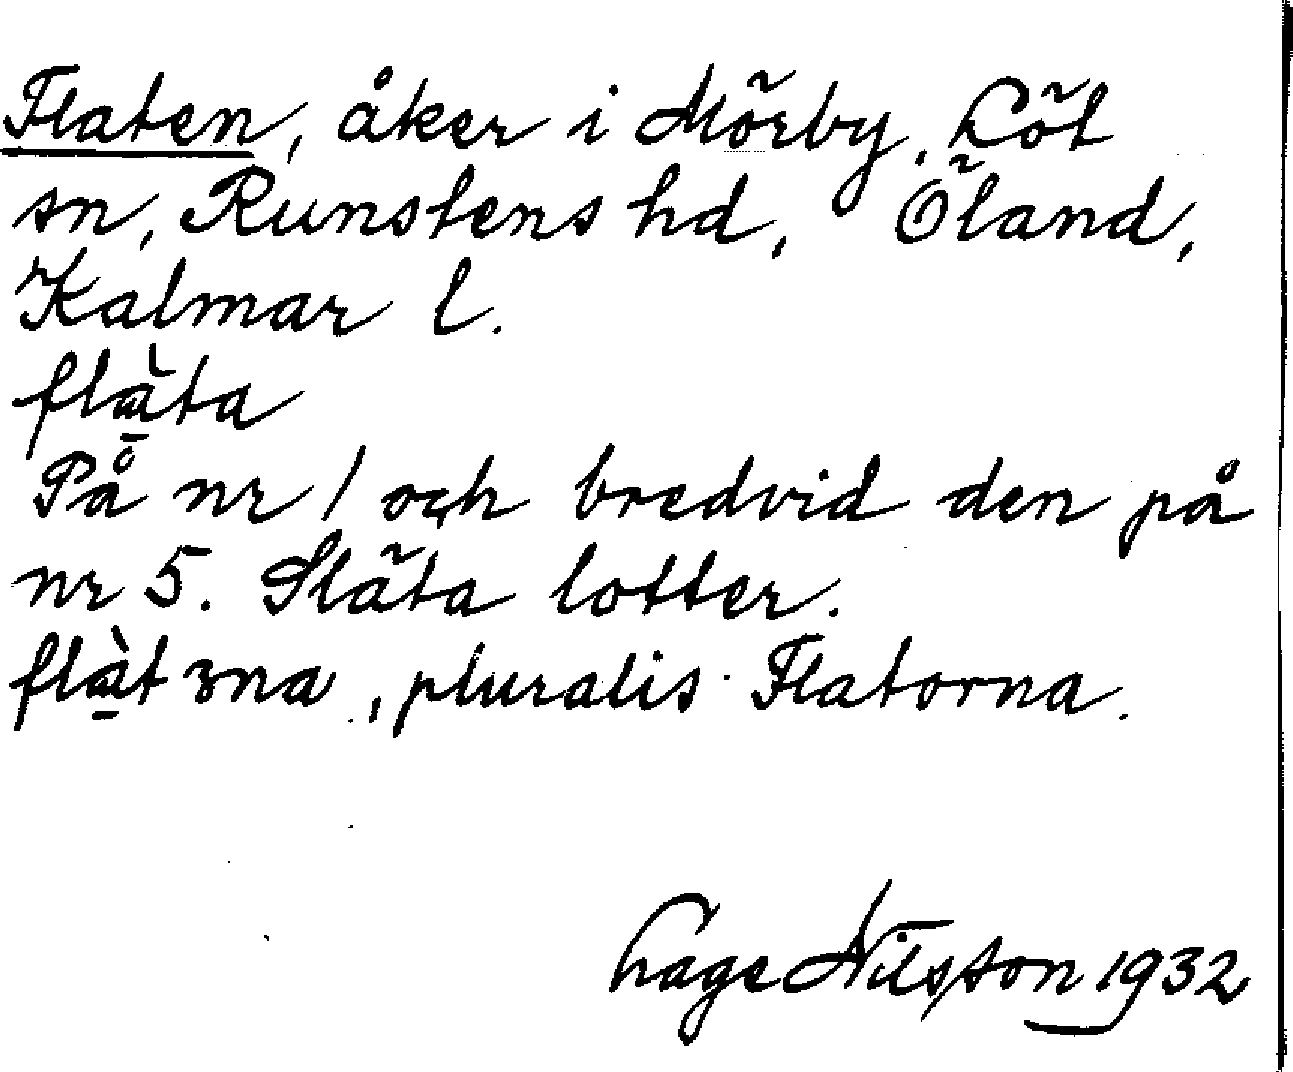 Flaten, åker i Mörby, Löt
sn, Runstens hd, Öland,
Kalmar l.
flà̱ta
På nr 1 och bredvid den på
nr 5. Släta lotter.
flà̱tɜna, pluralis Flatorna.
Lage Nilsson 1932